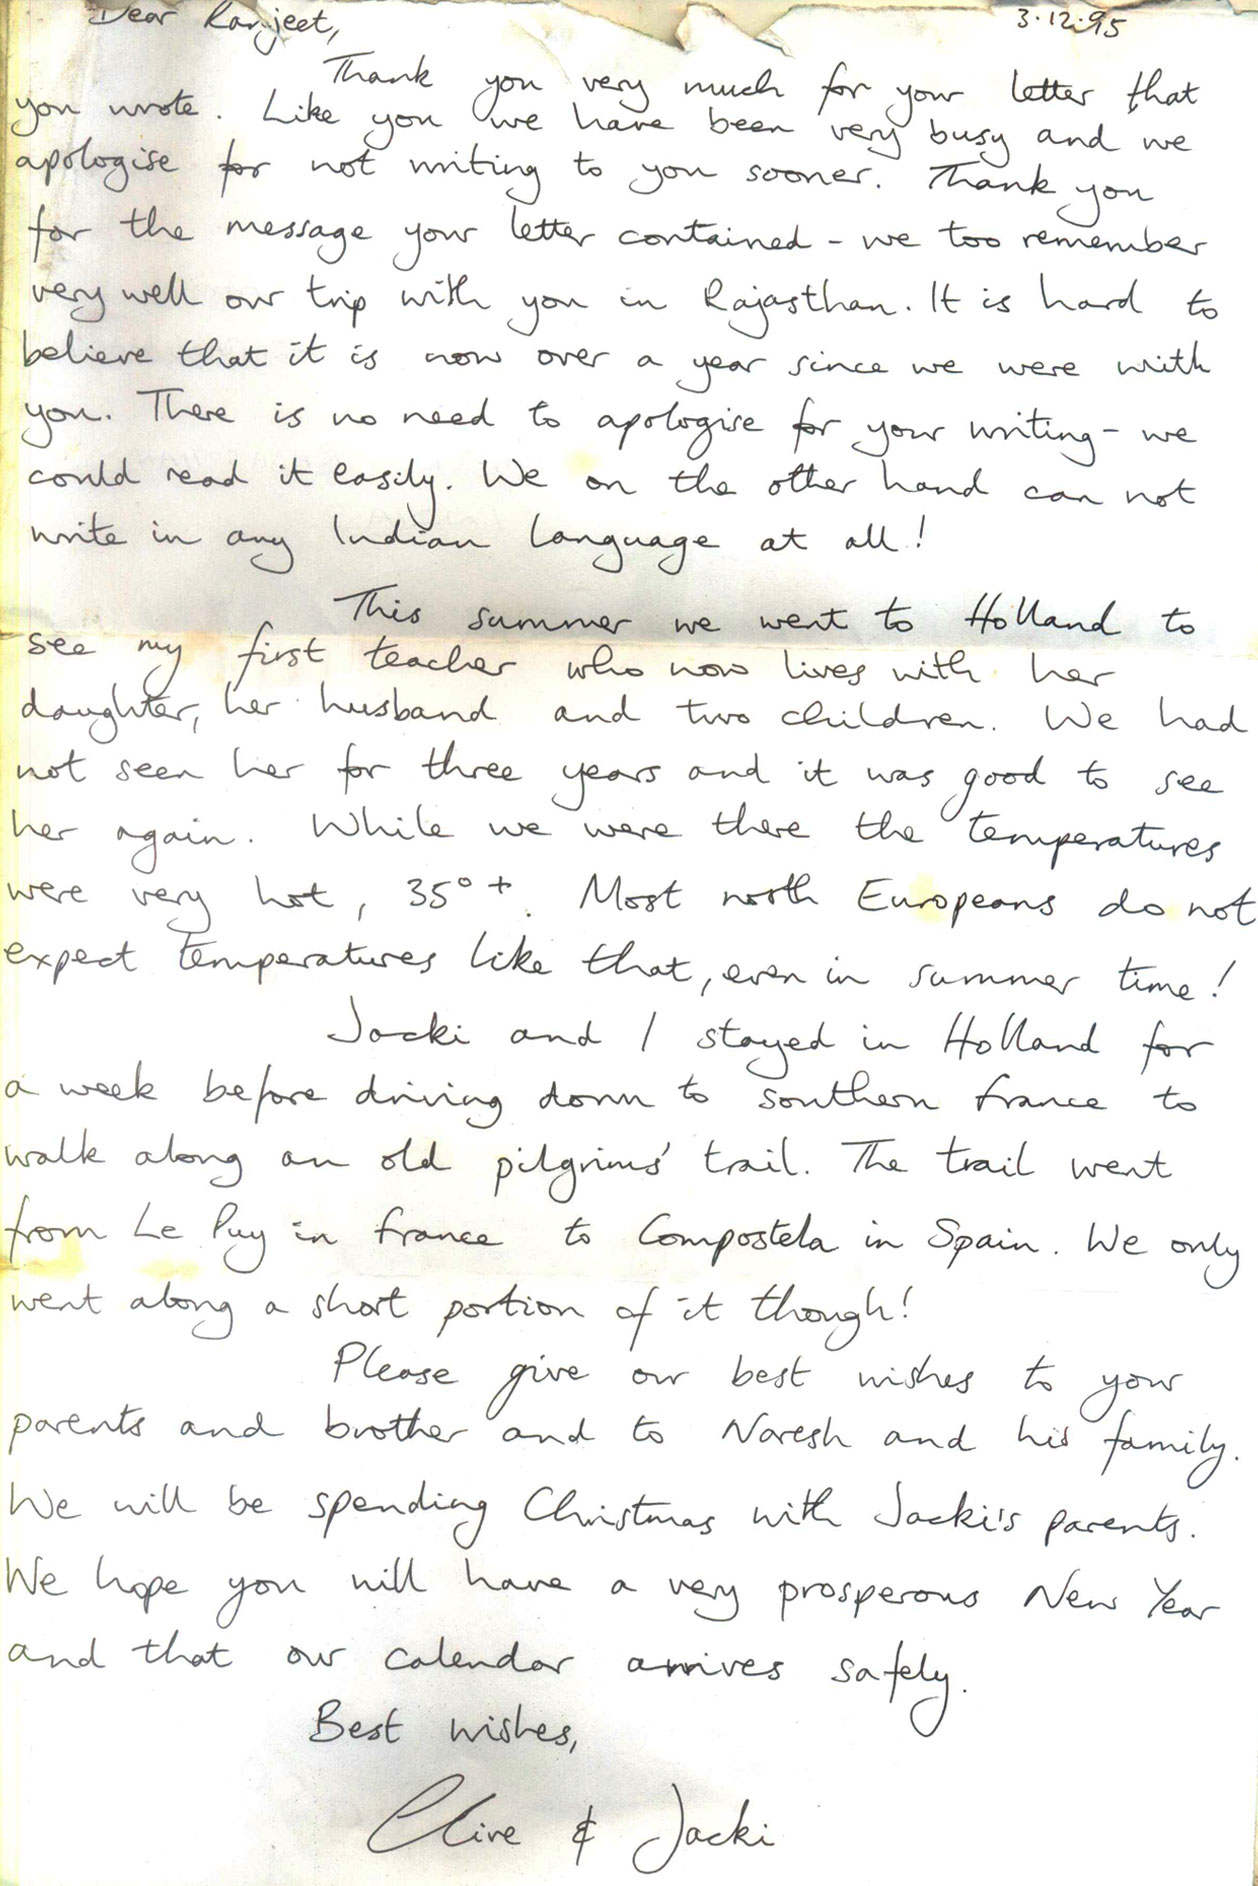 Dear Ranjeet,
3.12.95
Thank you very much for your letter that
you wrote. Like you we have been very busy and we
apologise for not writing to you sooner. Thank you
for the message your letter contained - we too remember
very well our trip with you in Rajasthan. It is hard to
believe that it is now over a year since we were with
you. There is no need to apologise for your writing - we
could read it easily. We on the other hand can not
write in any Indian language at all!
This summer we went to Holland to
see my first teacher who now lives with her
daughter, her husband and two children. We had
not seen her for three years and it was good to see
her again. While we were there the temperatures
were very hot, 35°+. Most north Europeans do not
expect temperatures like that, even in summer time!
Jacki and I stayed in Holland for
a week before driving down to southern France to
walk along an old pilgrims' trail. The trail went
from Le Puy in France to Compostela in Spain. We only
went along a short portion of it though!
Please give our best wishes to your
parents and brother and to Naresh and his family.
We will be spending Christmas with Jacki's parents.
We hope you will have a very prosperous New Year
and that our calendar arrives safely.
Best wishes,
Clive & Jacki